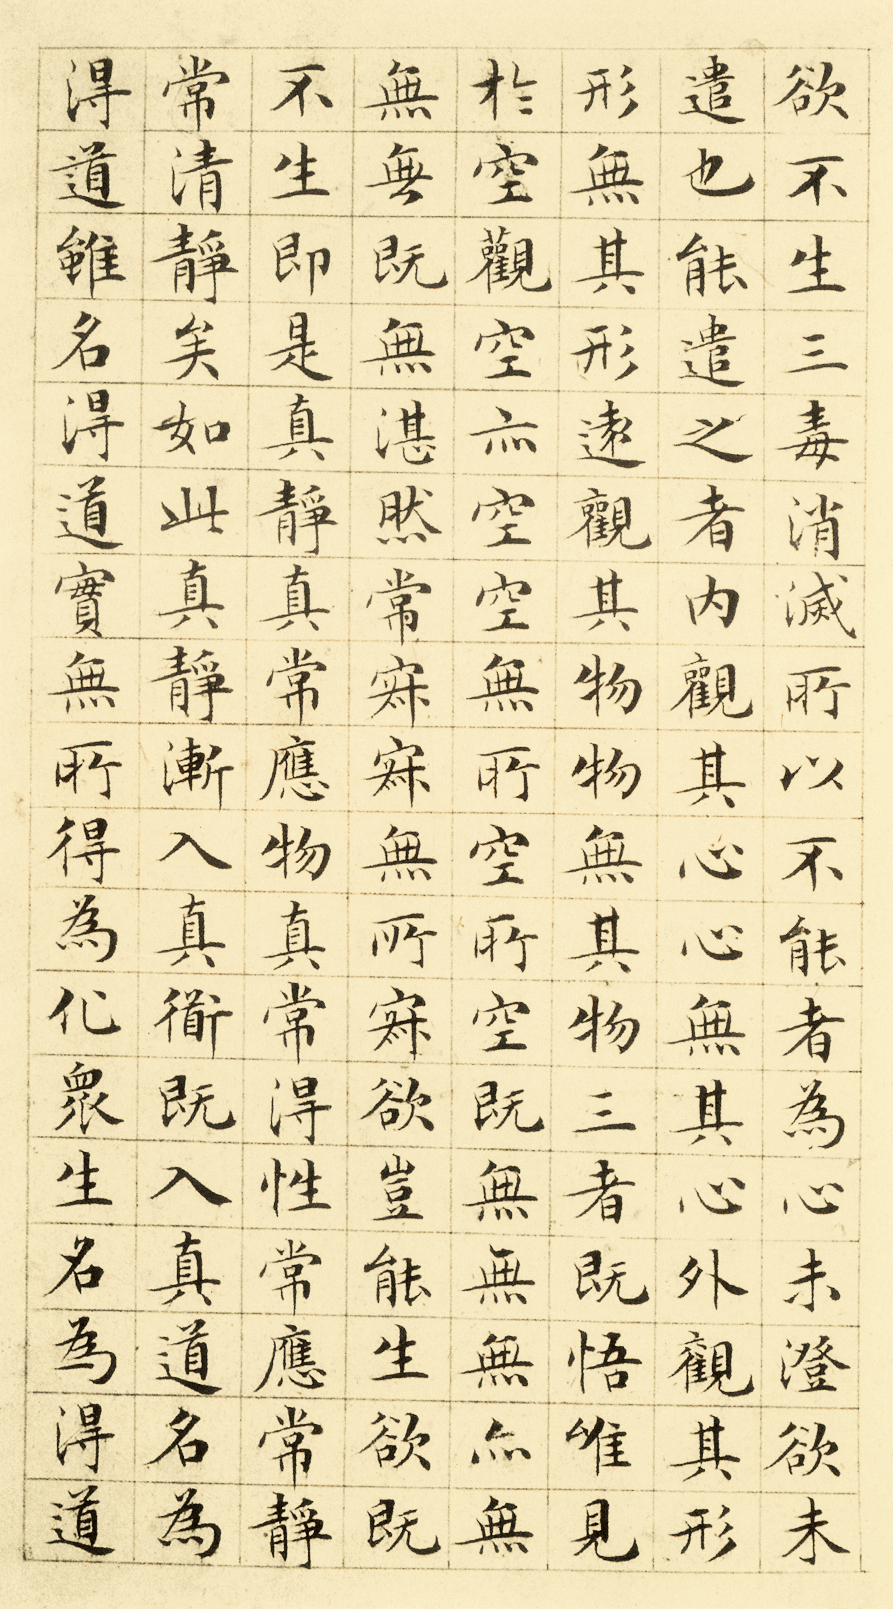 欲不生三毒消滅所以不能者為心未澄欲未
遣也能遣之者内觀其心心無其心外觀其形
形無其形遠觀其物物無其物三者既悟唯見
於空觀空亦空空無所空所空既無無無亦無
無無既無湛然常寂寂無所寂欲豈能生欲既
不生即是真靜真常應物真常得性常應常靜
常清靜矣如此真靜漸入真衜既入真道名為
得道雖名得道實無所得為化眾生名為得道